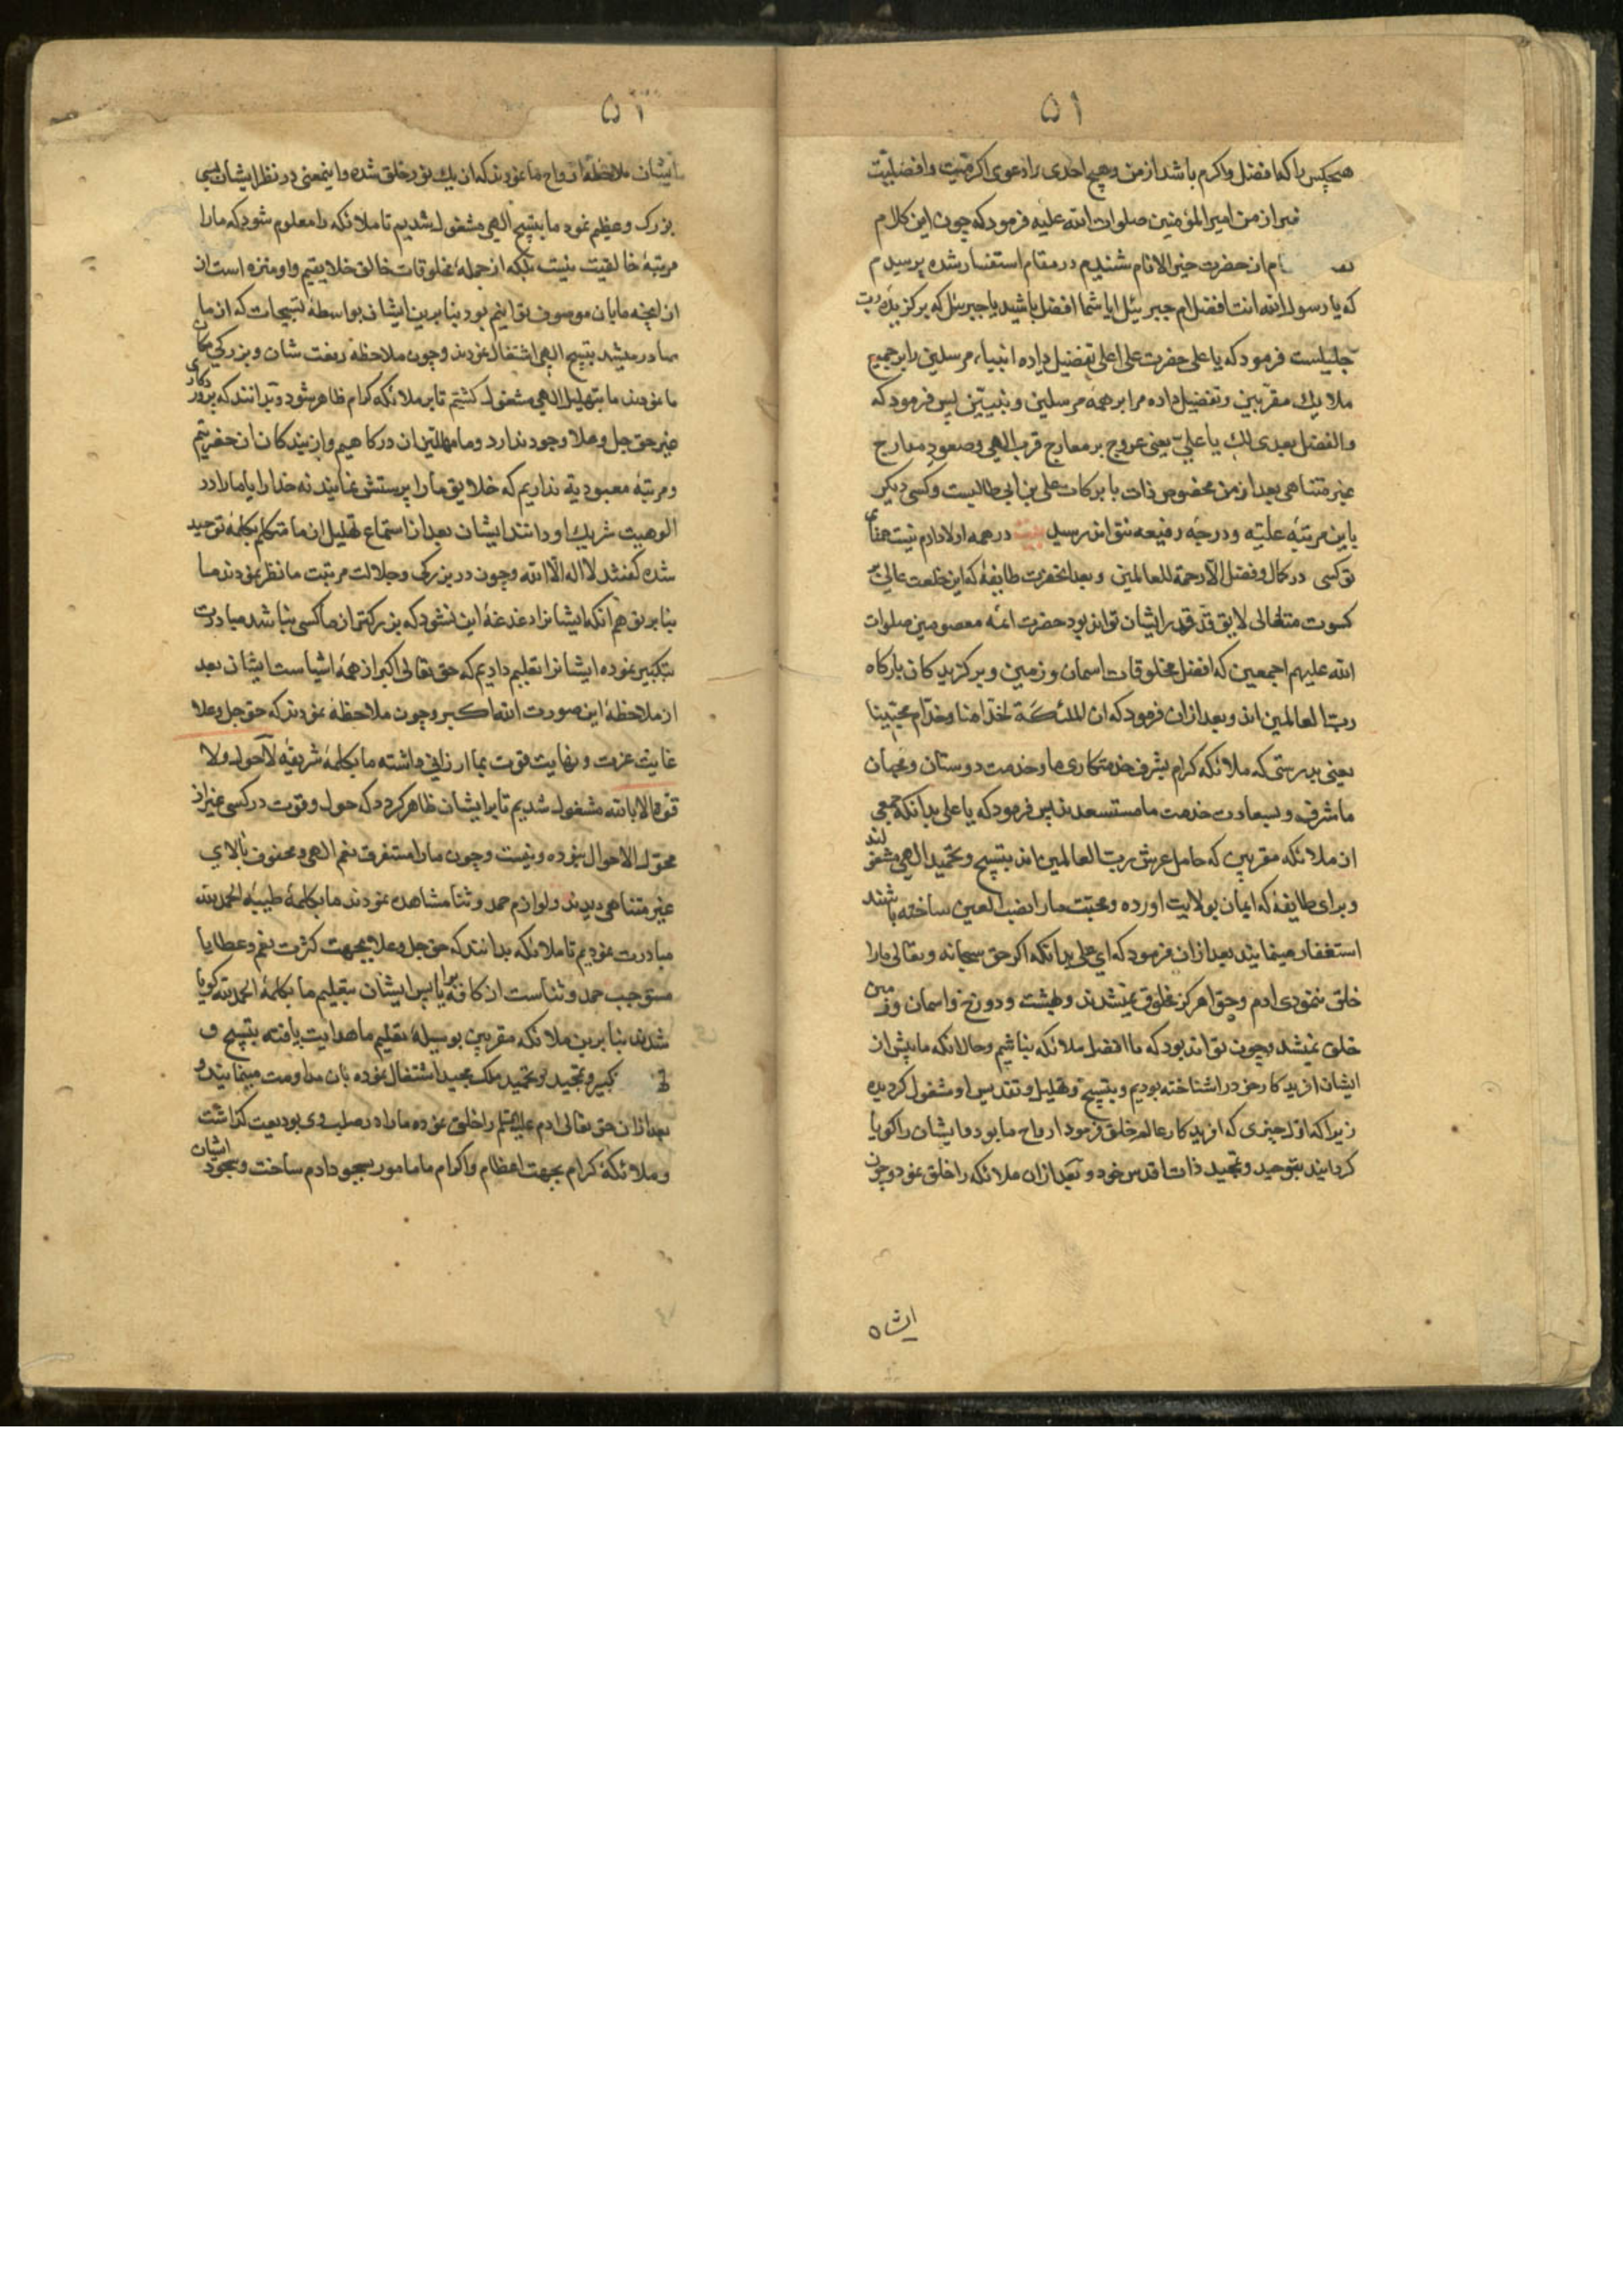 ۵۱
هیچکس را که افضل و اکرم باشد از من و هیچ احدی را دعوی اکرمیت و افضلیت
از من امیر المؤمنین صلوات الله علیه فرمود که چون این کلام
از حضرت خیر الانام شنیدم در مقام استفسار شده پرسیدم
که یا رسول الله انت افضل ام جبرئیل ایا شما افضل باشید یا جبرئیل که برکزیده رب
جلیلست فرمود که یا علی حضرت علی اعلی تفضیل داده انبیاء مرسلین را بر جمیع
ملایك مقربین و تفضیل داده مرا بر همه مرسلین و نبیین پس فرمود که
والفضل بعدی لك یا علی یعنی عروج بر معارج قرب الهی و صعود معارج
غیر متناهی بعد از من مخصوص ذات با برکات علی بن ابی طالبست و کسی دیکر
باین مرتبه علیه و درجه رفیعه نتواند رسید بیت در همه اولاد ادم نیست همتای
تو کسی در کمال و فضل الا رحمة للعالمین و بعد انحضرت طایفۀ که این خلعت عالی
کسوت متعالی لایق قد قدر ایشان تواند بود حضرت ائمه معصومین صلوات
الله علیهم اجمعین که افضل مخلوقات اسمان و زمین و برکزیدکان بارکاه
رب العالمین اند و بعد از ان فرمود که ان الملئکة لخدامنا و خدام محبینا
یعنی بدرستی که ملائکه کرام بشرف خدمتکاری ما و خدمت دوستان و محبان
ما مشرف و بسعادت خدمت ما مستسعدند پس فرمود که یا علی بدانکه جمعی
از ملائکه مقربین که حامل عرش رب العالمین اند بتسبیح و تحمید الهی مشغولند
و برای طایفۀ که ایمان بولایت اورده و محبت ما را نصب العین ساخته باشند
استغفار مینمایند بعد از ان فرمود که ای علی بدانکه اکر حق سبحانه و تعالی ما را
خلق ننمودی ادم و حوا هرکز مخلوق نمیشدند و بهشت و دوزخ و اسمان و زمین
خلق نمیشد و چون تواند بود که ما افضل ملائکه نباشیم و حالانکه ما پیش از
ایشان افریدکار خود را شناخته بودیم و بتسبیح و تهلیل و تقدیس او مشغول کردیده
زیرا که اول چیزی که افریدکار عالم خلق فرمود ارواح ما بود و ایشان را کویا
کردانید بتوحید و تمجید ذات اقدس خود و بعد از ان ملائکه را خلق نمود و چون
ایشان
۵۲
ایشان ملاحظۀ ارواح ما نمودند که از یك نور خلق شده و اینمعنی در نظر ایشان بسی
بزرک و عظیم نمود ما بتسبیح الهی مشغول شدیم تا ملائکه را معلوم شود که ما را
مرتبۀ خالقیت نیست بلکه از جمله مخلوقات خالق خلایقیم و او منزه است از
از انچه ما بان موصوف توانیم بود بنابرین ایشان بواسطۀ تسبیحات که از ما
صادر میشد بتسبیح الهی اشتغال نمودند و چون ملاحظۀ رفعت شان و بزرکی مکان
ما نمودند ما بتهلیل الهی مشغول کشتیم تا بر ملائکه کرام ظاهر شود و بدانند که پروردکاری
غیر حق جل و علا وجود ندارد و ما مهللین ان درکاهیم و از بندکان ان حضرتیم
و مرتبۀ معبودیة نداریم که خلایق ما را پرستش نمایند نه خدا را یا ما را در
الوهیت شریك او دانند ایشان بعد از استماع تهلیل از ما متکلم بکلمۀ توحید
شده کفتند لا اله الا الله و چون در بزرکی و جلالت مرتبت ما نظر نمودند ما
بنابر توهم انکه ایشانرا دغدغۀ این نشود که بزرکتر از ما کسی نباشد مبادرت
بتکبیر نموده ایشانرا تعلیم دادیم که حق تعالی اکبر از همه اشیاست ایشان بعد
از ملاحظۀ این صورت الله اکبر و چون ملاحظه نمودند که حق جل و علا
غایت عزت و نهایت قوت بما ارزانی داشته ما بکلمۀ شریفۀ لا حول و لا
قوة الا بالله مشغول شدیم تا بر ایشان ظاهر کردد که حول و قوت در کسی غیر از
محول الاحوال نبوده و نیست و چون ما را مستغرق نعم الهی و محفوف بالای
غیر متناهی دیدند و لوازم حمد و ثنا مشاهده نمودند ما بکلمۀ طیبۀ الحمد لله
مبادرت نمودیم تا ملائکه بدانند که حق جل و علا بجهت کثرت نعم و عطایا
مستوجب حمد و ثناست از کافه برایا پس ایشان بتعلیم ما بکلمۀ الحمد لله کویا
شدند بنابرین ملائکه مقربین بوسیلۀ تعلیم ما هدایت یافته بتسبیح و
تکبیر و تمجید و تحمید ملك مجید اشتغال نموده بان مداومت مینمایند و
بعد از ان حق تعالی ادم علیه السلم را خلق نموده ما را در صلب وی بودیعت کذاشت
و ملائکۀ کرام بجهت اعظام و اکرام ما مامور بسجود ادم ساخت و سجود ایشان